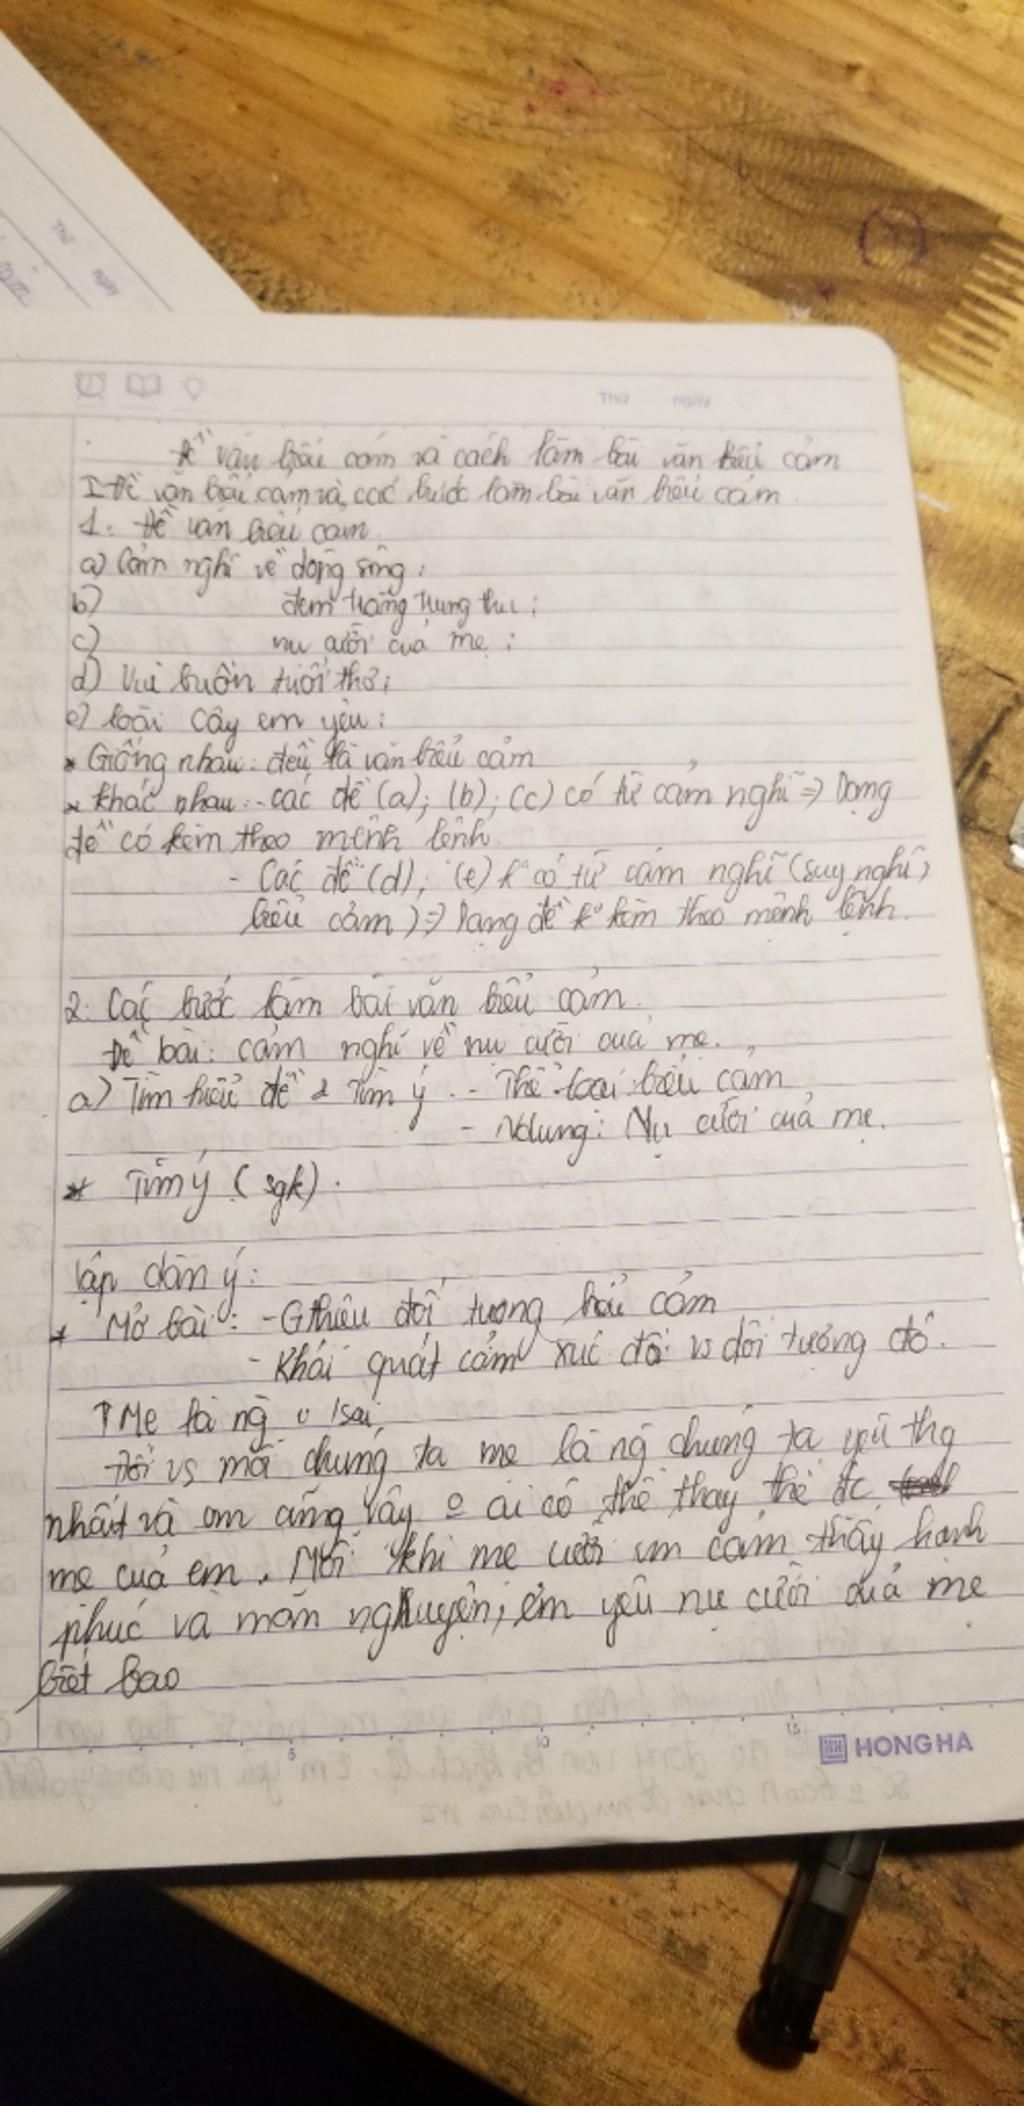 Thứ ngày
Đề văn biểu cảm và cách làm bài văn biểu cảm
I Đề văn biểu cảm và các bước làm bài văn biểu cảm
1. Đề văn biểu cảm
a) Cảm nghĩ về dòng sông;
b) đêm trăng trung thu;
c) nụ cười của mẹ;
d) Vui buồn tuổi thơ;
e) loài cây em yêu;
* Giống nhau: đều là văn biểu cảm
* khác nhau: - các đề (a); (b); (c) có từ cảm nghĩ => Dạng
đề có kèm theo mệnh lệnh
- Các đề (d); (e) ko có từ cảm nghĩ (suy nghĩ,
biểu cảm) => Dạng đề ko kèm theo mệnh lệnh.
2. Các bước làm bài văn biểu cảm.
Đề bài: cảm nghĩ về nụ cười của mẹ.
a) Tìm hiểu đề & Tìm ý - Thể loại: biểu cảm
- Ndung: Nụ cười của mẹ.
* Tìm ý (sgk).
lập dàn ý:
* Mở bài: - Gthiệu đối tượng biểu cảm
- Khái quát cảm xúc đối vs đối tượng đó.
Mẹ là ng
Đối vs mỗi chúng ta mẹ là ng chúng ta yêu thg
nhất và em cũng vậy ai có thể thay thế đc
mẹ của em. Mỗi khi mẹ cười em cảm thấy hạnh
phúc và mãn nguyện, em yêu nụ cười của mẹ
biết bao
5 10 15
HONG HA